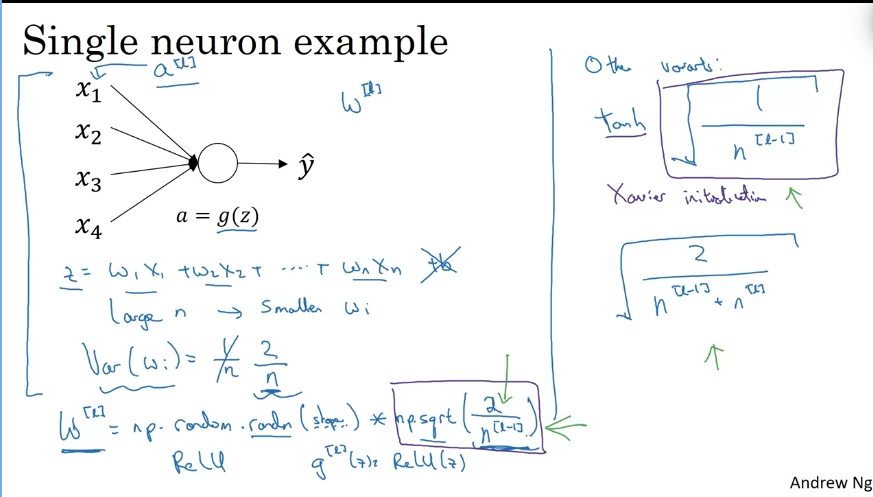 Single neuron example
a^[l]
x₁
x₂
x₃
x₄
w^[l]
ŷ
a = g(z)
z = w₁x₁ + w₂x₂ + ... + wₙxₙ +b
Large n → Smaller wᵢ
Var(wᵢ) = 1/n 2/n
W^[l] = np.random.randn(shape) * np.sqrt(2/n^[l-1])
ReLU g^[l](z) = ReLU(z)
Other variants:
tanh √(1/n^[l-1])
Xavier initialization
√(2/(n^[l-1] + n^[l]))
Andrew Ng